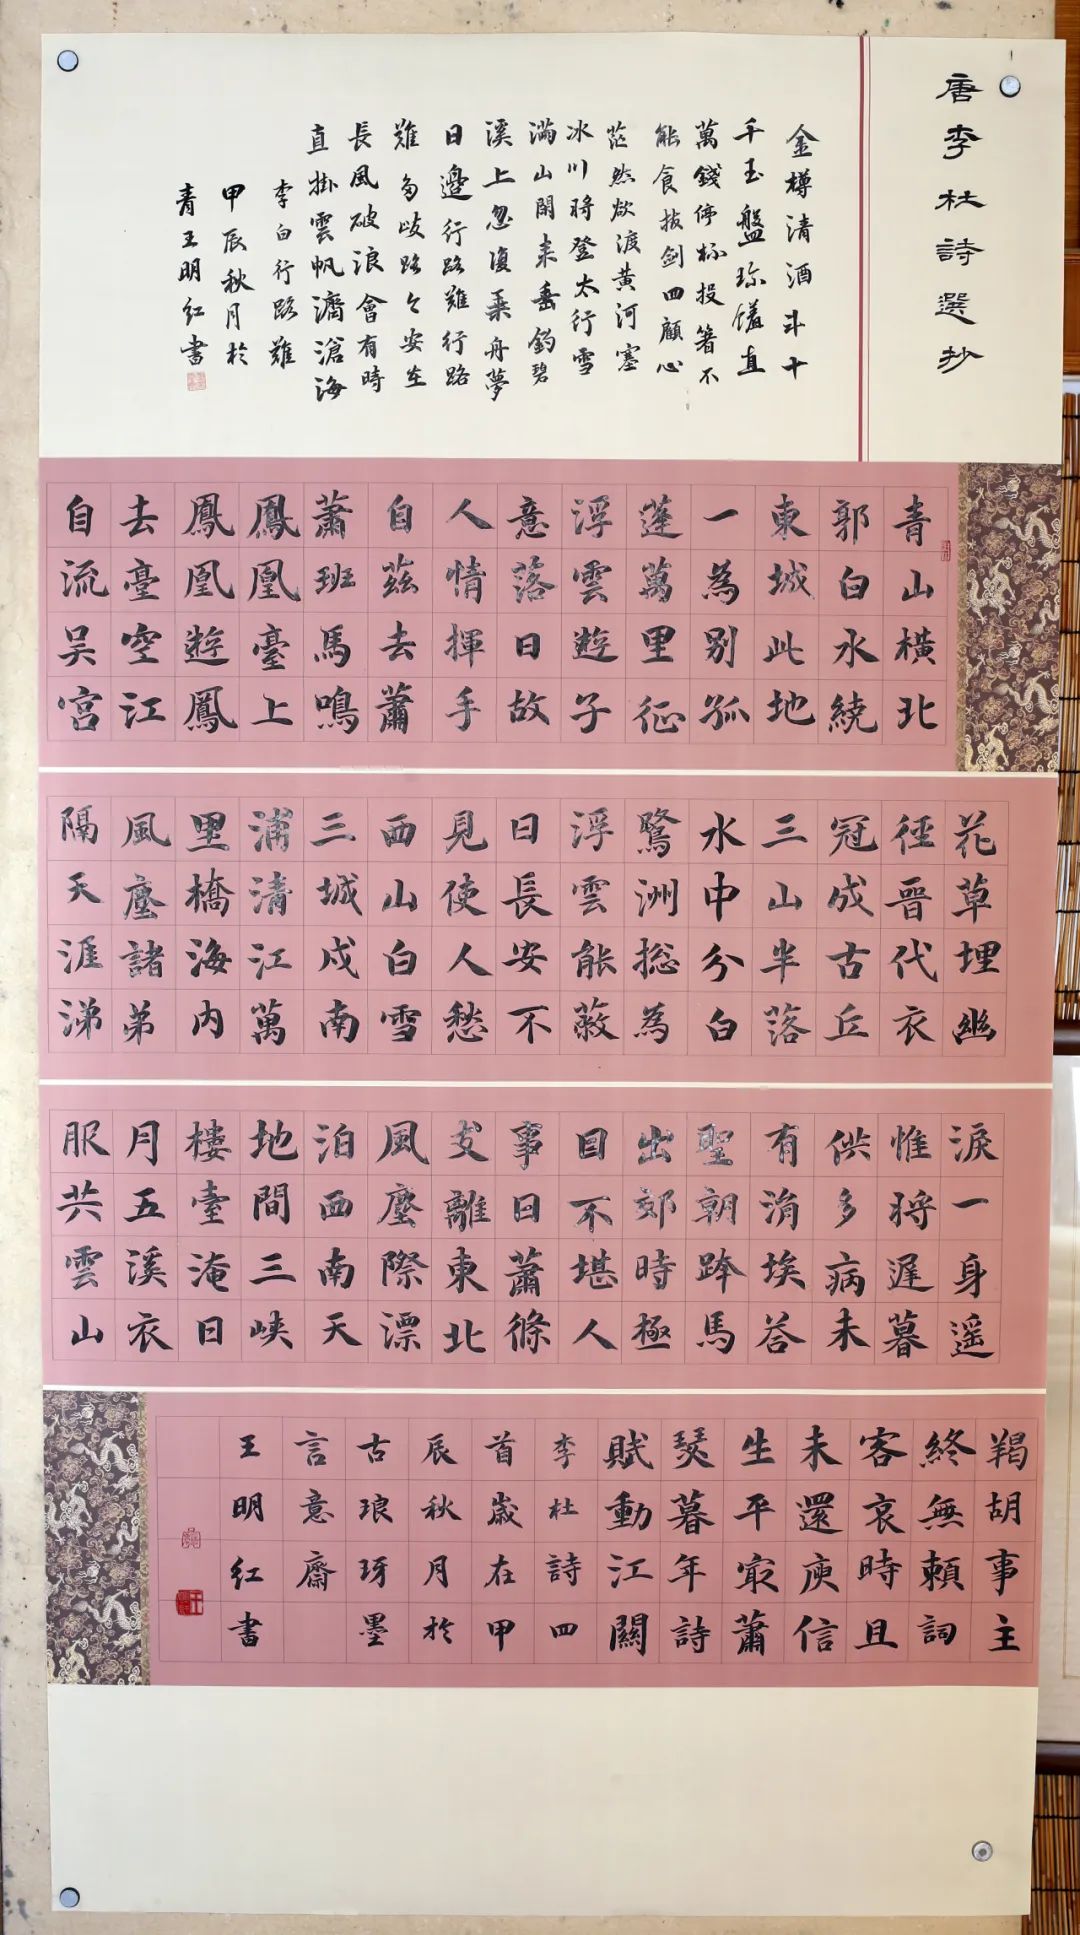 唐李杜詩選抄
金樽清酒斗十
千玉盤珍饈直
萬錢停杯投箸不
能食拔劍四顧心
茫然欲渡黃河塞
冰川將登太行雪
滿山閑来垂釣碧
溪上忽復乘舟夢
日邊行路難行路
難多歧路々安在
長風破浪會有時
直掛雲帆濟滄海
李白行路難
甲辰秋月於
青王明红書
青山橫北
郭白水繞
東城此地
一為別孤
蓬萬里征
浮雲遊子
意落日故
人情揮手
自茲去蕭
蕭班馬鳴
鳳凰臺上
鳳凰遊鳳
去臺空江
自流吴宮
花草埋幽
徑晉代衣
冠成古丘
三山半落
水中分白
鷺洲捴為
浮雲能蔽
日長安不
見使人愁
西山白雪
三城戍南
浦清江萬
里橋海內
風塵諸弟
隔天涯涕
淚一身遥
惟將遲暮
供多病未
有涓埃答
聖朝跨馬
出郊時極
目不堪人
事日蕭條
支離東北
風塵際漂
泊西南天
地間三峽
樓臺淹日
月五溪衣
服共雲山
羯胡事主
終無賴詞
客哀時且
未還庾信
生平最蕭
瑟暮年詩
賦動江關
李杜詩四
首歲在甲
辰秋月於
古琅玡墨
言意齋
王明红書